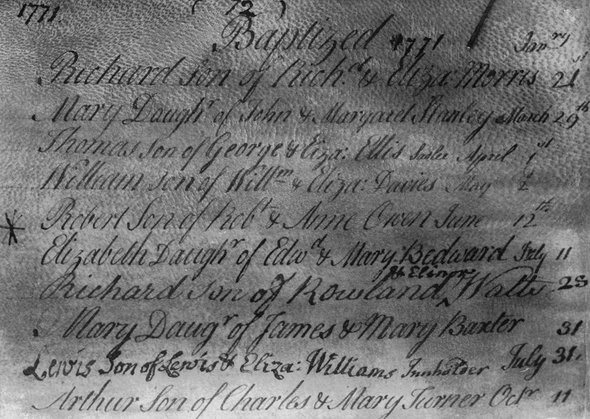 1771. (12)
Baptized 1771 Janry
Richard Son of Richd. & Eliza: Morris 21st
Mary Daughr of John & Margaret Stanley March 29th
Thomas Son of George & Eliza: Ellis April 1st
William Son of Willm & Eliza: Davies May
Robert Son of Robt & Anne Owen June 12th
Elizabeth Daughr of Edwd & Mary Bedward July 11
& Elinor
Richard Son of Rowland Watts 28
Mary Daugr of James & Mary Baxter 31
Lewis Son of Lewis & Eliza: Williams Innholder July 31.
Arthur Son of Charles & Mary Turner Octr 11